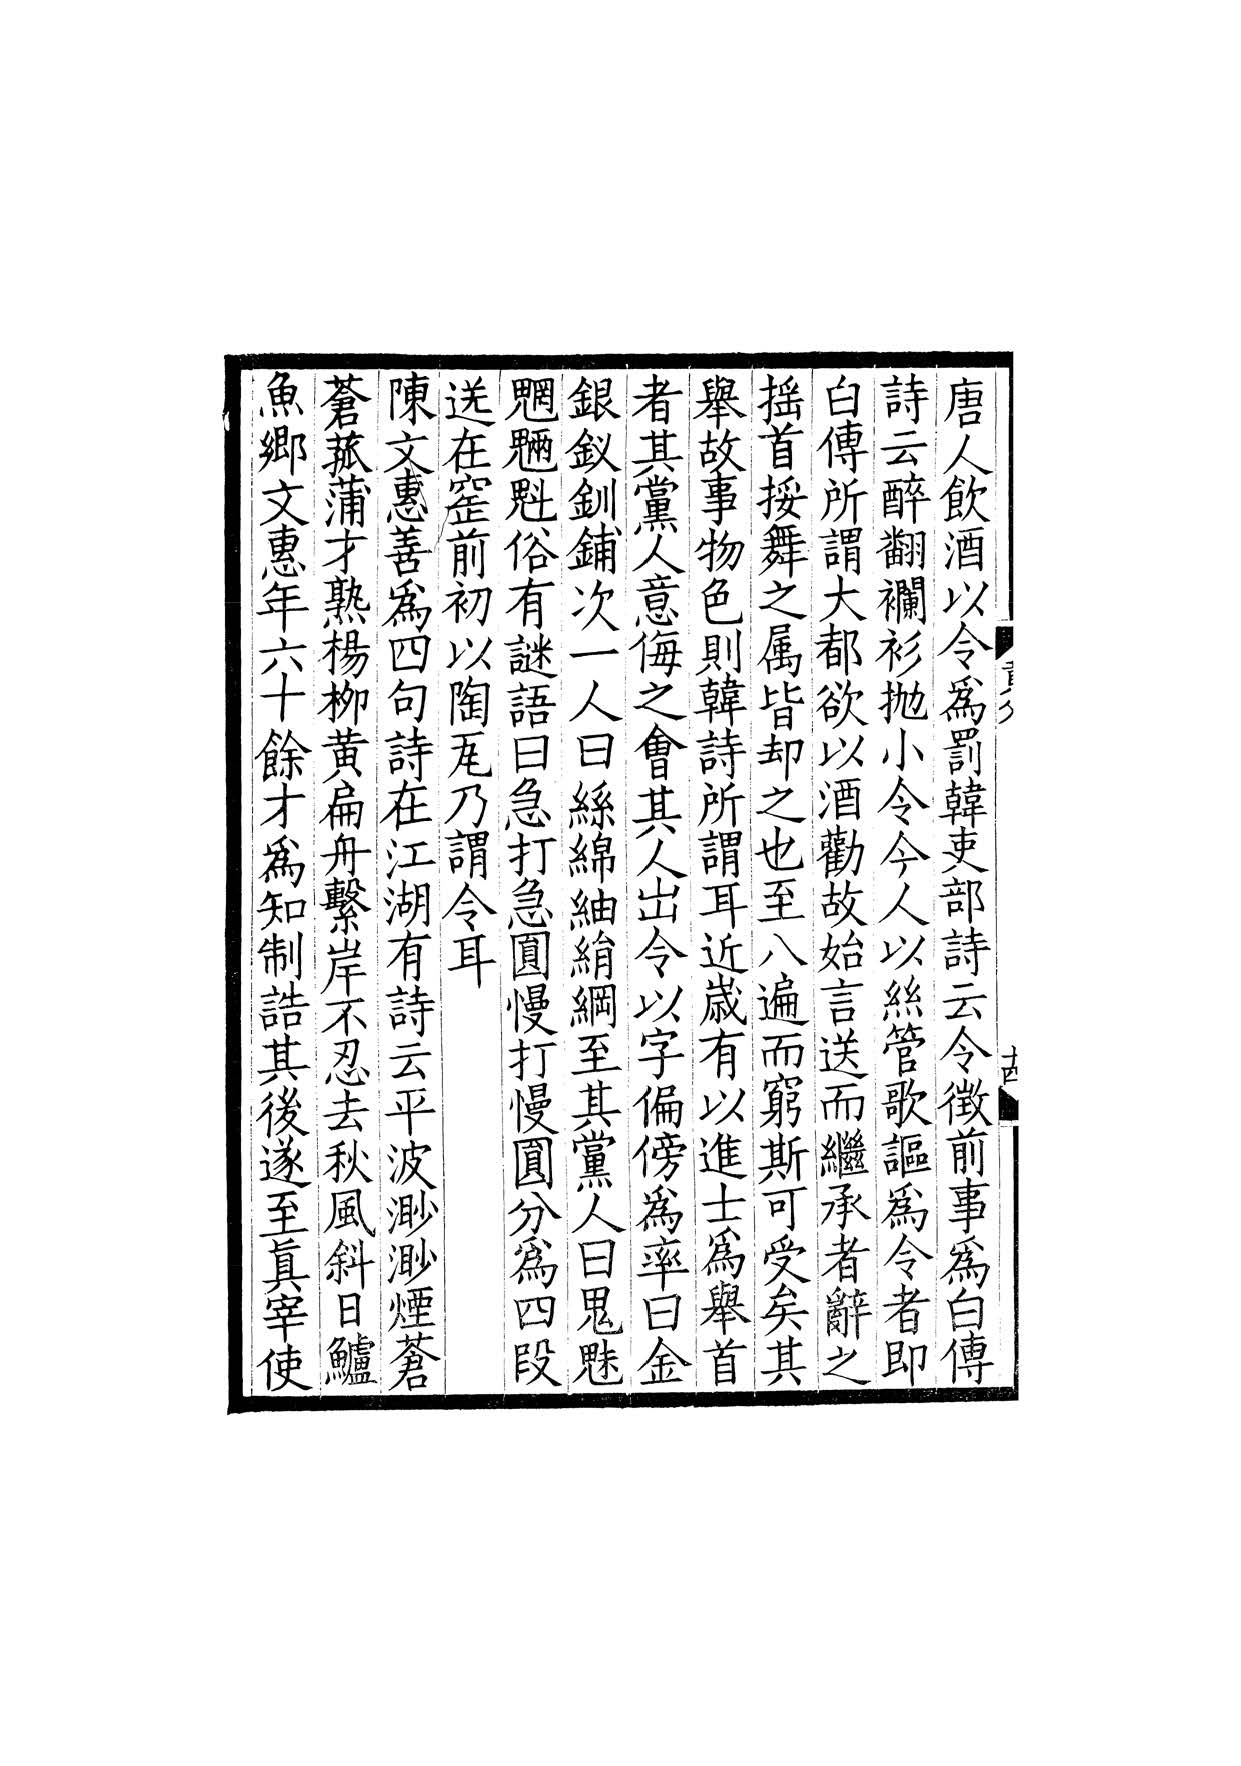 唐人飲酒以令爲罰韓吏部詩云令徵前事爲白傳
詩云醉翻襴衫抛小令今人以絲管歌謳爲令者即
白傳所謂大都欲以酒勸故始言送而繼承者辭之
摇首挼舞之属皆却之也至八遍而窮斯可受矣其
舉故事物色則韓詩所謂耳近歲有以進士爲舉首
者其黨人意侮之會其人出令以字偏傍爲率曰金
銀釵釧鋪次一人曰絲綿紬絹綱至其黨人曰鬼魅
魍魎魁俗有謎語曰急打急圓慢打慢圓分爲四段
送在窰前初以陶瓦乃謂令耳
陳文惠善爲四句詩在江湖有詩云平波渺渺煙蒼
蒼菰蒲才熟楊柳黄扁舟繫岸不忍去秋風斜日鱸
魚鄉文惠年六十餘才爲知制誥其後遂至真宰使
十四